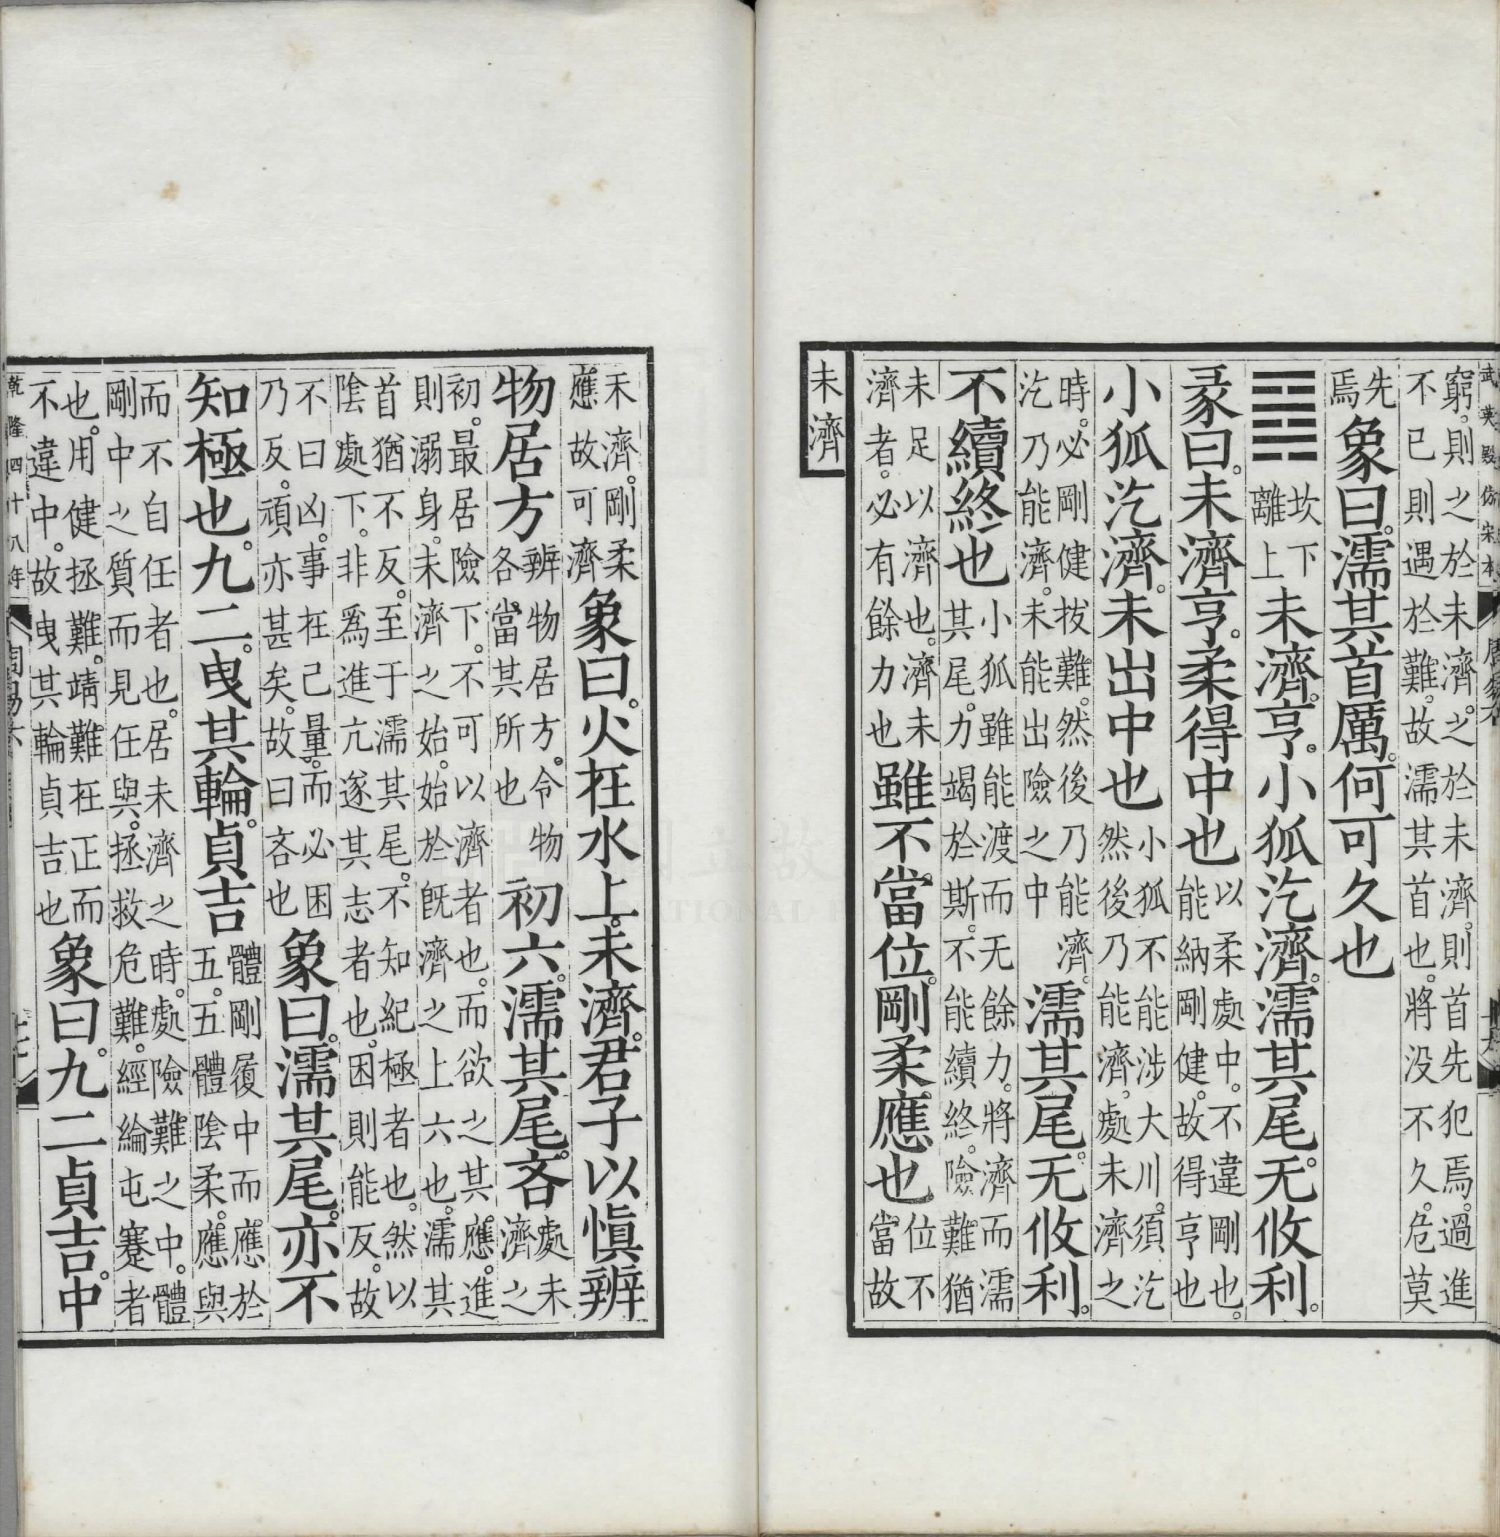 武英殿仿宋本
窮則之於未濟之於未濟則首先犯焉過進
不已則遇於難故濡其首也將没不久危莫
先
焉
象曰濡其首厲何可久也
坎下
離上
未濟亨小狐汔濟濡其尾无攸利
彖曰未濟亨柔得中也
以柔處中不違剛也
能納剛健故得亨也
小狐汔濟未出中也
小狐不能涉大川須汔
然後乃能濟處未濟之
時必剛健拔難然後乃能濟
汔乃能濟未能出險之中
濡其尾无攸利
不續終也
小狐雖能渡而无餘力將濟而濡
其尾力竭於斯不能續終險難猶
未足以濟也濟未
濟者必有餘力也
雖不當位剛柔應也
位不
當故
未濟
禾濟剛柔
應故可濟
象曰火在水上未濟君子以愼辨
物居方
辨物居方令物
各當其所也
初六濡其尾吝
處未
濟之
初最居險下不可以濟者也而欲之其應進
則溺身未濟之始始於旣濟之上六也濡其
首猶不反至于濡其尾不知紀極者也然以
陰處下非爲進亢遂其志者也困則能反故
不曰凶事在己量而必困
乃反頑亦甚矣故曰吝也
象曰濡其尾亦不
知極也九二曳其輪貞吉
體剛履中而應於
五五體陰柔應與
而不自任者也居未濟之時處險難之中體
剛中之質而見任與拯救危難經綸屯蹇者
也用健拯難靖難在正而
不違中故曳其輪貞吉也
象曰九二貞吉中
乾隆四十八年